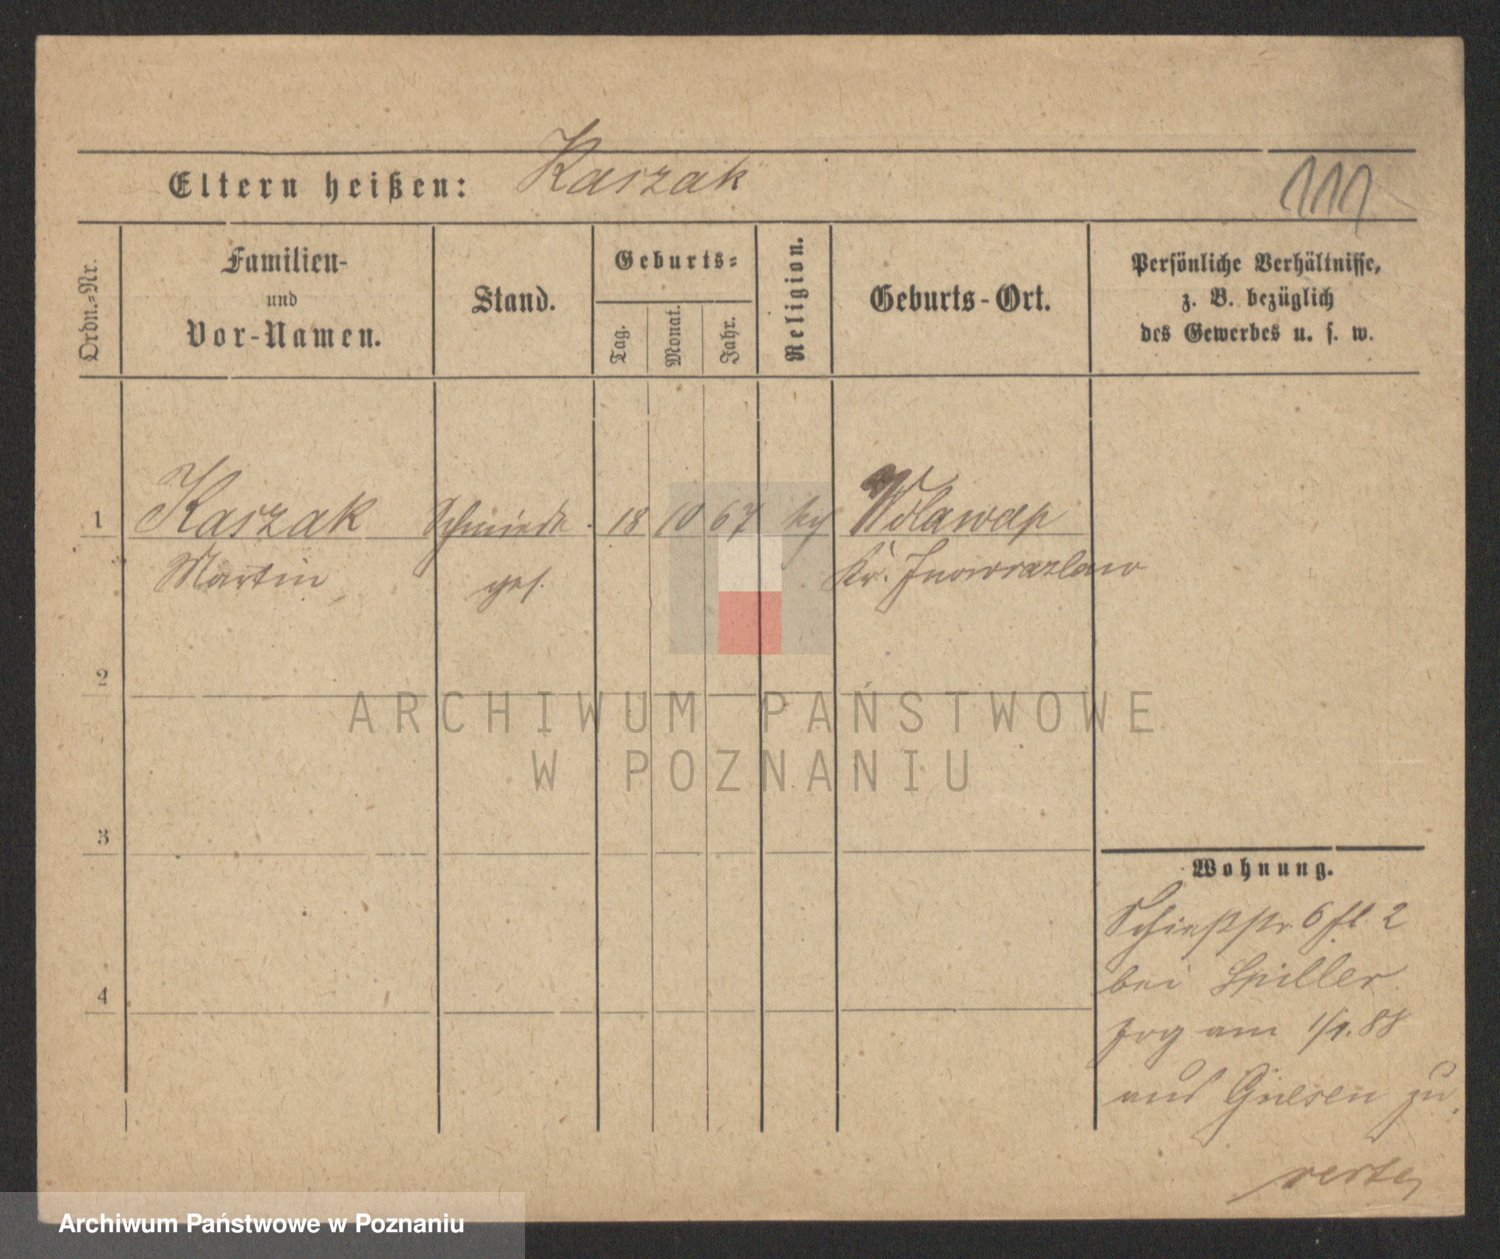 Eltern heißen: Kaszak
111
Ordn.-Nr.
Familien-
und
Vor-Namen.
Stand.
Geburts-
Tag.
Monat.
Jahr.
Religion.
Geburts-Ort.
Persönliche Verhältnisse,
z. B. bezüglich
des Gewerbes u. s. w.
1 Kaszak Schmiede 18 10 67 kth Wdlawap
Martin ges. Kr. Inowrazlaw
2
3
4
Wohnung.
Schießstr 6 fl. 2
bei Spiller
zog am 1/1. 88
aus Gnesen zu.
verte
ARCHIWUM PAŃSTWOWE
W POZNANIU
Archiwum Państwowe w Poznaniu